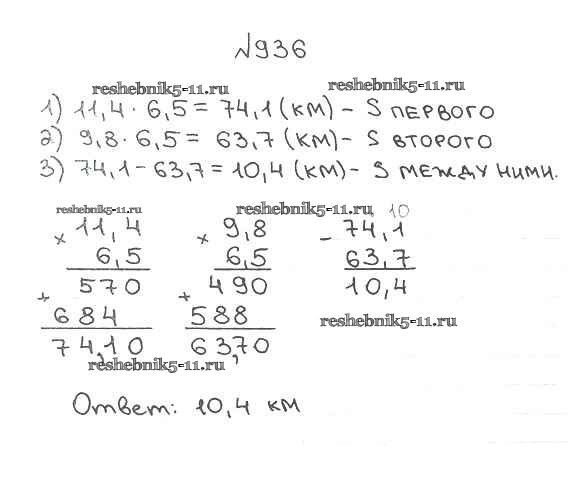 №936
reshebnik5-11.ru reshebnik5-11.ru
1) 11,4 · 6,5 = 74,1 (км) – S первого
2) 9,8 · 6,5 = 63,7 (км) – S второго
3) 74,1 – 63,7 = 10,4 (км) – S между ними.
reshebnik5-11.ru reshebnik5-11.ru 10
× 11,4 × 9,8 – 74,1
6,5 6,5 63,7
570 490 10,4
+ 684 + 588
reshebnik5-11.ru
74,10 63,70
reshebnik5-11.ru
Ответ: 10,4 км